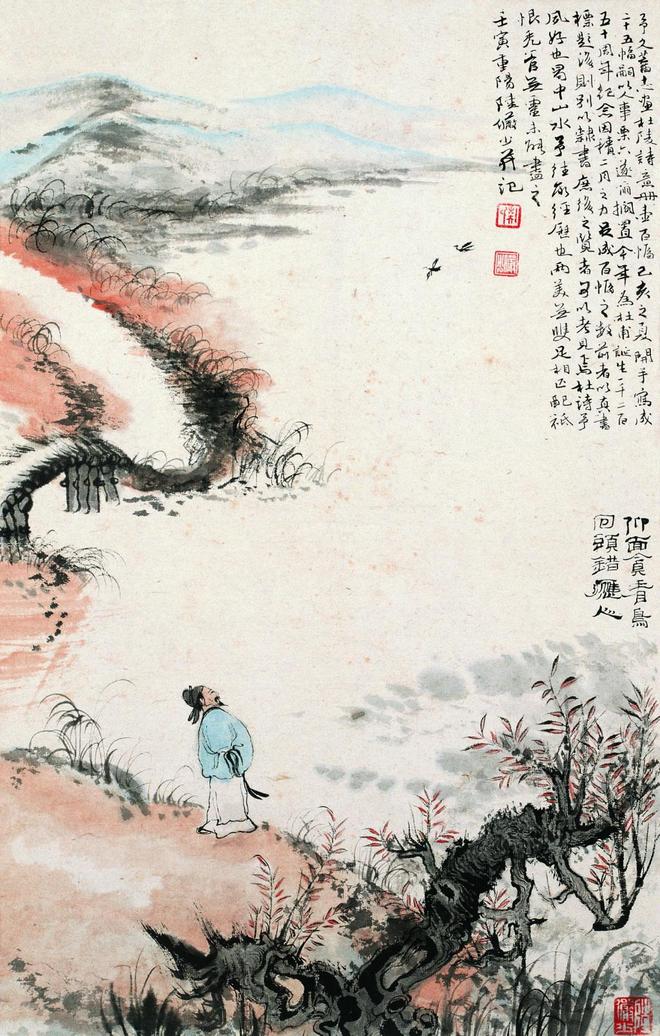 予久蓄志畫杜陵詩意冊畫百幅己亥之夏開手寫成
二十五幅嗣以人事栗六遂爾擱置今年為杜甫誕生一千二百
五十周年紀念因積二月之力足成百幅之數前者以真書
標題後則別以隸書庶後之覽者可以考見焉杜詩予
夙好也蜀中山水予往歲經歷也兩美無雙足相匹配祗
恨禿管無靈未能盡之
壬寅重陽陸儼少并記
仰面貪看鳥
回頭錯應人